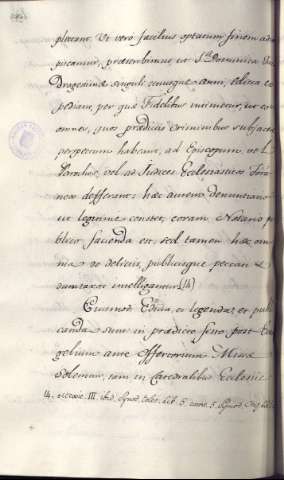 plicent. Ut vero facilius optatum finem adi
piscamur, praescribimus ut Iª. Dominica
Quadragesimae singulis cuiusque anni, edicta
pediant, per quae Fidelibus iniungitur, ut
omnes, quos praedictis criminibus subjacere
perspectum habeant, ad Episcopum, vel
Parochos, vel ad Judices Ecclesiasticos
defferant: haec autem denuntiatio
ut legitime constet, coram Notario pu
blico facienda est: sed tamen haec om
nia de delictis, publicisque peccatis
dumtaxat intelligantur (14)
Eiusmodi Edicta, et legenda, et publi
canda sunt in praedicto fine post Evan
gelium ante Offertorium Missae
solemnis, tam in Catedralibus Ecclesiis
14. actione III. ibid. Synod. Lib. 5 const. 5. Synod.